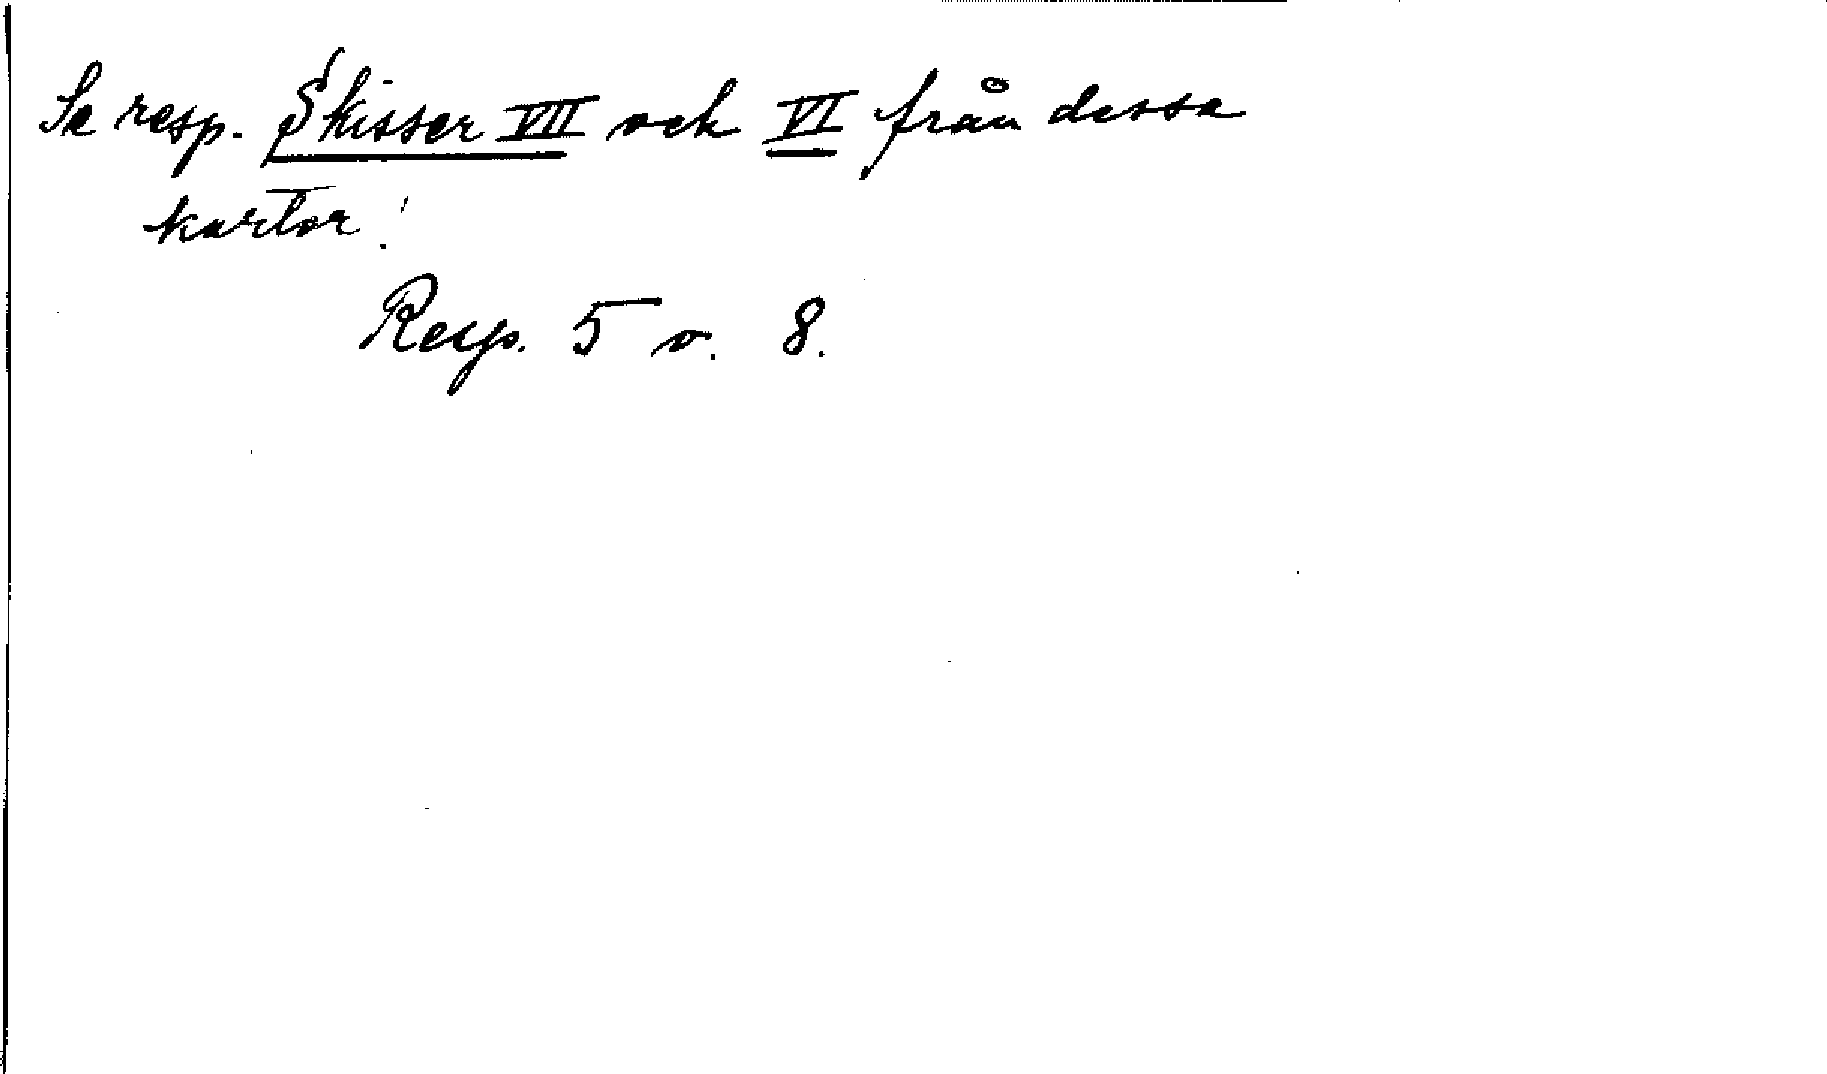 Se resp. Skisser VII och VI från dessa
kartor!
Resp. 5 o. 8.